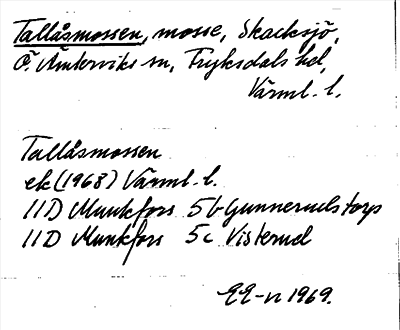 Tallåsmossen, mosse, Skacksjö,
Ö. Ämterviks sn, Fryksdals hd,
Värml. l.
Tallåsmossen
ek (1968) Värml. l.
11D Munkfors 5b Gunnerudstorp
11D Munkfors 5c Visterud
1969.